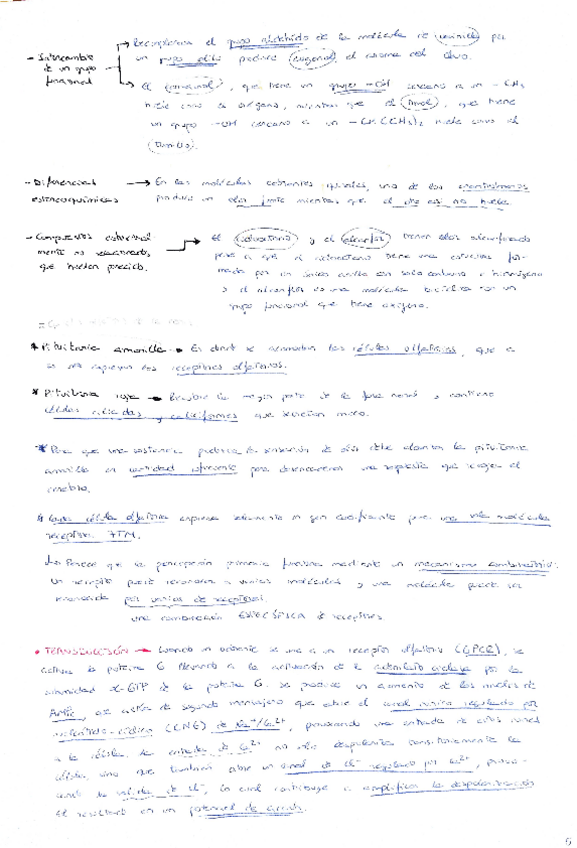 - Intercambio de un grupo funcional
→ Reemplazar el grupo aldehído de la molécula de vainilla por
un grupo alilo produce eugenol, el aroma del clavo.
→ El carvacrol, que tiene un grupo -OH cercano a un -CH3
huele como a orégano, mientras que el timol, que tiene
un grupo -OH cercano a un -CH(CH3)2 huele como el
tomillo.
- Diferencias estereoquímicas → En las moléculas odorantes quirales, uno de los enantiómeros
produce un olor fuerte mientras que el otro casi no huele.
- Compuestos estructuralmente no relacionados, que huelen parecido.
→ El y el alcanfor tienen olor alcanforado
pese a que el tiene una estructura for-
mada por un único anillo con solo carbono e hidrógeno
y el alcanfor es una molécula bicíclica con un
grupo funcional que tiene oxígeno.
* Pituitaria amarilla → Es donde se acumulan las células olfatorias, que a
su vez expresan los receptores olfatorios.
* Pituitaria roja → Recubre la mayor parte de la fosa nasal y contiene
células ciliadas y caliciformes que secretan moco.
* Para que una sustancia produzca la sensación de olor debe alcanzar la pituitaria
amarilla en cantidad suficiente para desencadenar una respuesta que recoja el
cerebro.
* Cada célula olfatoria expresa solamente un gen codificante para una sola molécula
receptora 7TM.
↳ Parece que la percepción primaria funciona mediante un mecanismo combinatorio:
Un receptor puede reconocer a varias moléculas y una molécula puede ser
reconocida por varios de receptores.
una combinación ESPECÍFICA de receptores.
• TRANSDUCCIÓN → Cuando un odorante se une a un receptor olfatorio (GPCR), se
activa la proteína G llevando a la activación de la adenilato ciclasa por la
subunidad α-GTP de la proteína G. Se produce un aumento de los niveles de
AMPc, que actúa de segundo mensajero que abre el canal iónico regulado por
nucleótido cíclico (CNG) de Na+/Ca2+, provocando una entrada de estos iones
a la célula. La entrada de Ca2+ no sólo despolariza transitoriamente la
célula, sino que también abre un canal de Cl- regulado por Ca2+, provo-
cando la salida de Cl-, lo cual contribuye a amplificar la despolarización
El resultado es un potencial de acción.